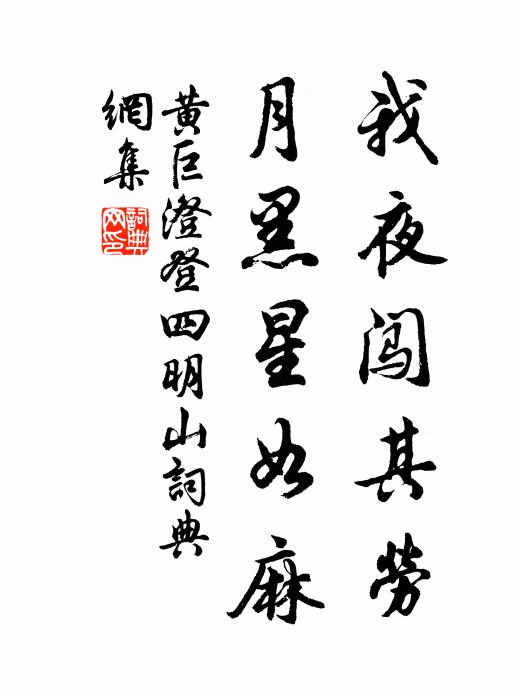 我夜闯其劳
月黑星如麻
黄巨澄登四明山詞典
網集
詞典
网印